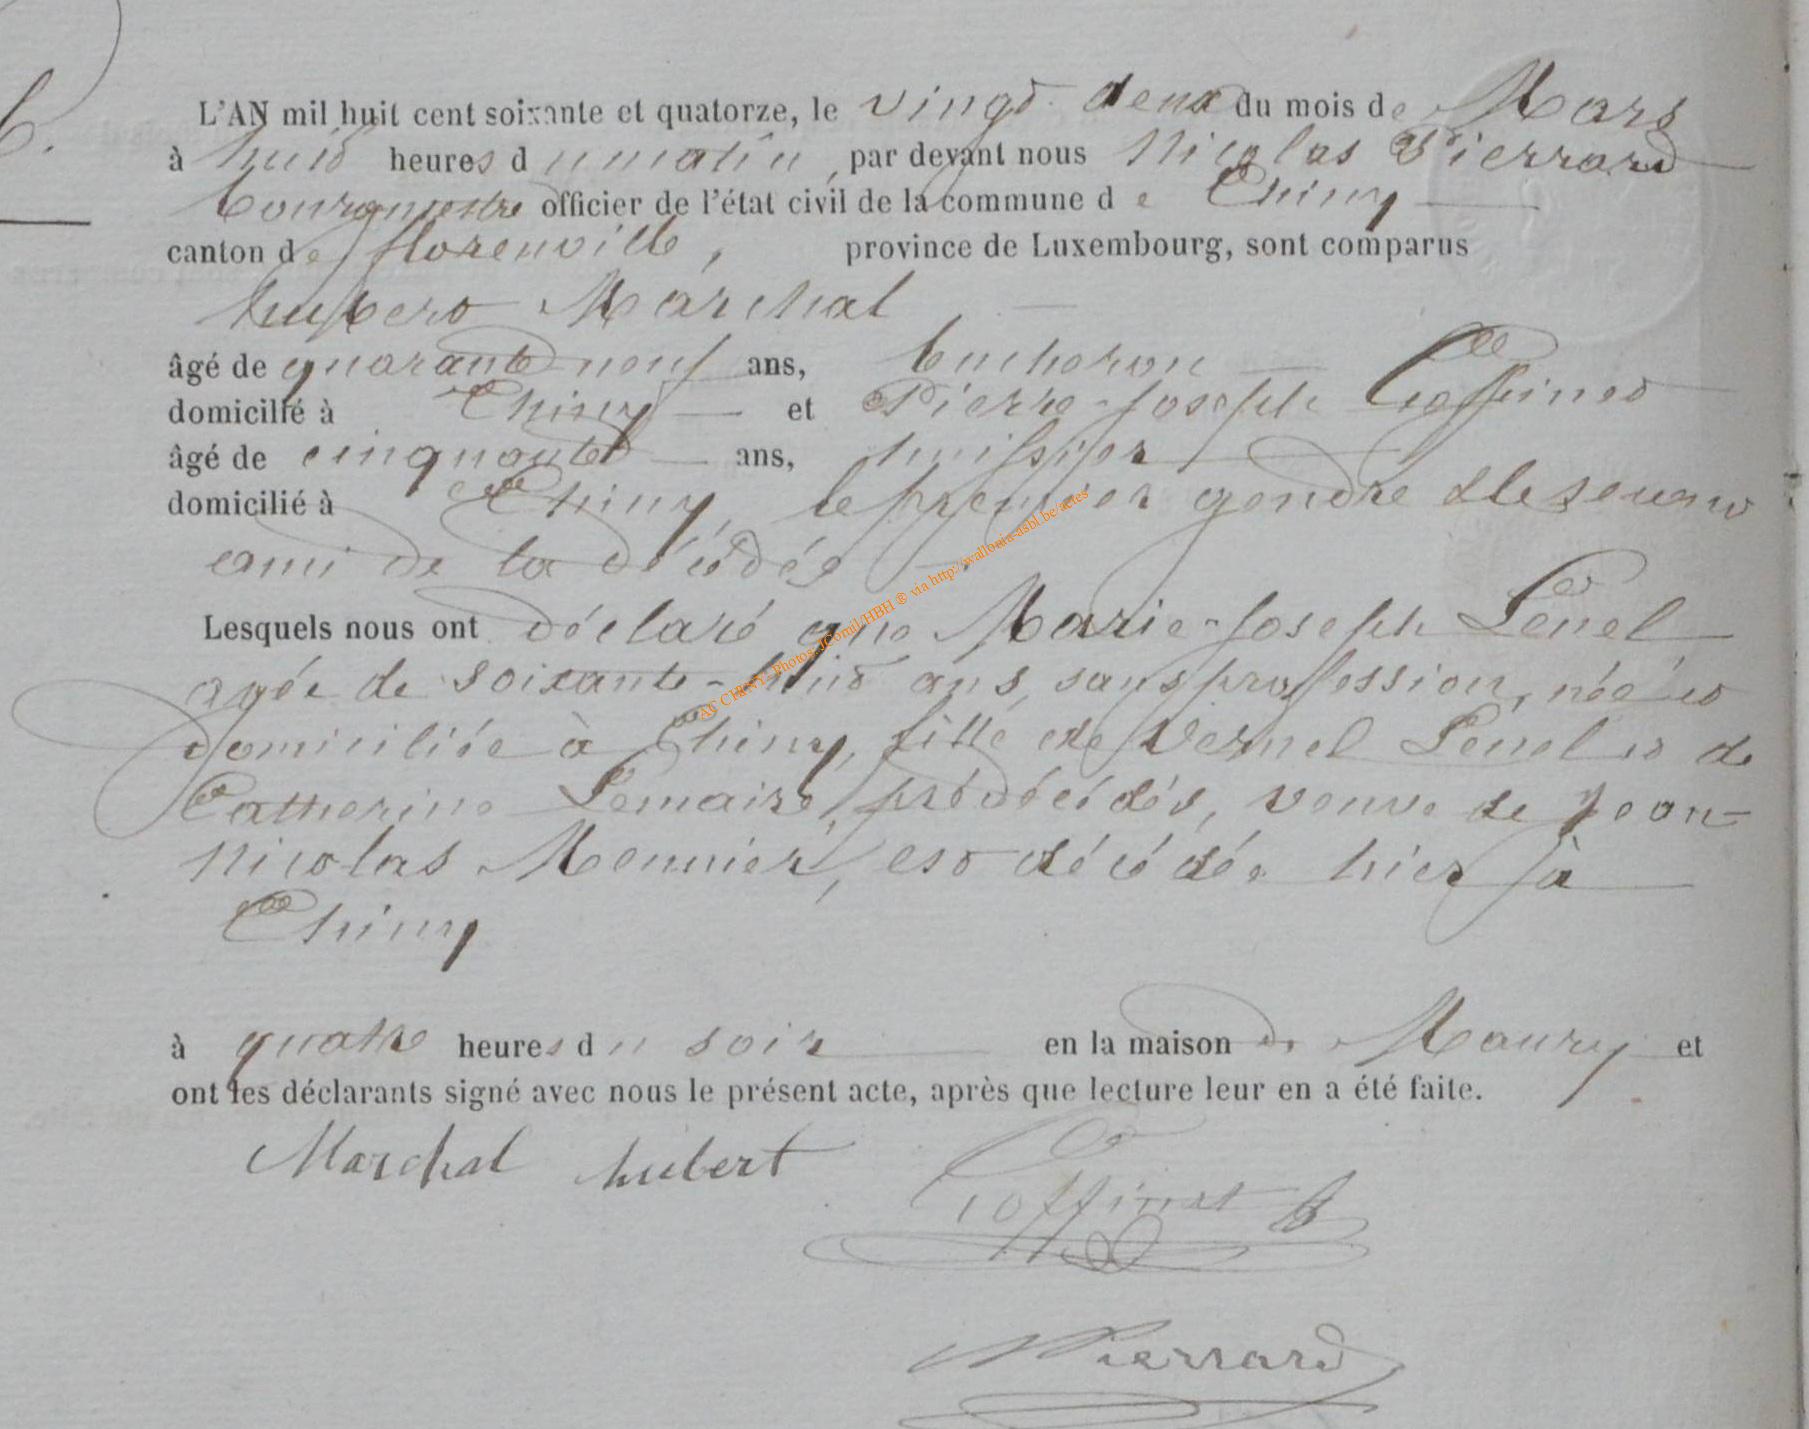 6.
L'AN mil huit cent soixante et quatorze, le vingt deux du mois de Mars
à huit heures du matin, par devant nous Nicolas Pierrard
bourgmestre officier de l'état civil de la commune de Chiny
canton de florenville, province de Luxembourg, sont comparus
hubert Marchal
âgé de quarante neuf ans, bucheron
domicilié à Chiny et Pierre-Joseph Goffinet
âgé de cinquante ans, huissier
domicilié à Chiny, le premier gendre & le second
ami de la décédée
Lesquels nous ont déclaré que Marie-Joseph Lénel
agée de soixante-huit ans, sans profession, née et
domiciliée à Chiny, fille de Vernel Lénel et de
Catherine Lemaire, prédécédés, veuve de Jean-
nicolas Meunier, est décédée hier à
Chiny
à quatre heures du soir en la maison de Maury et
ont les déclarants signé avec nous le présent acte, après que lecture leur en a été faite.
Marchal hubert
Goffinet
NPierrard
AC CHINY - Photos: JComil/HBH ® via http://wallonia-asbl.be/actes